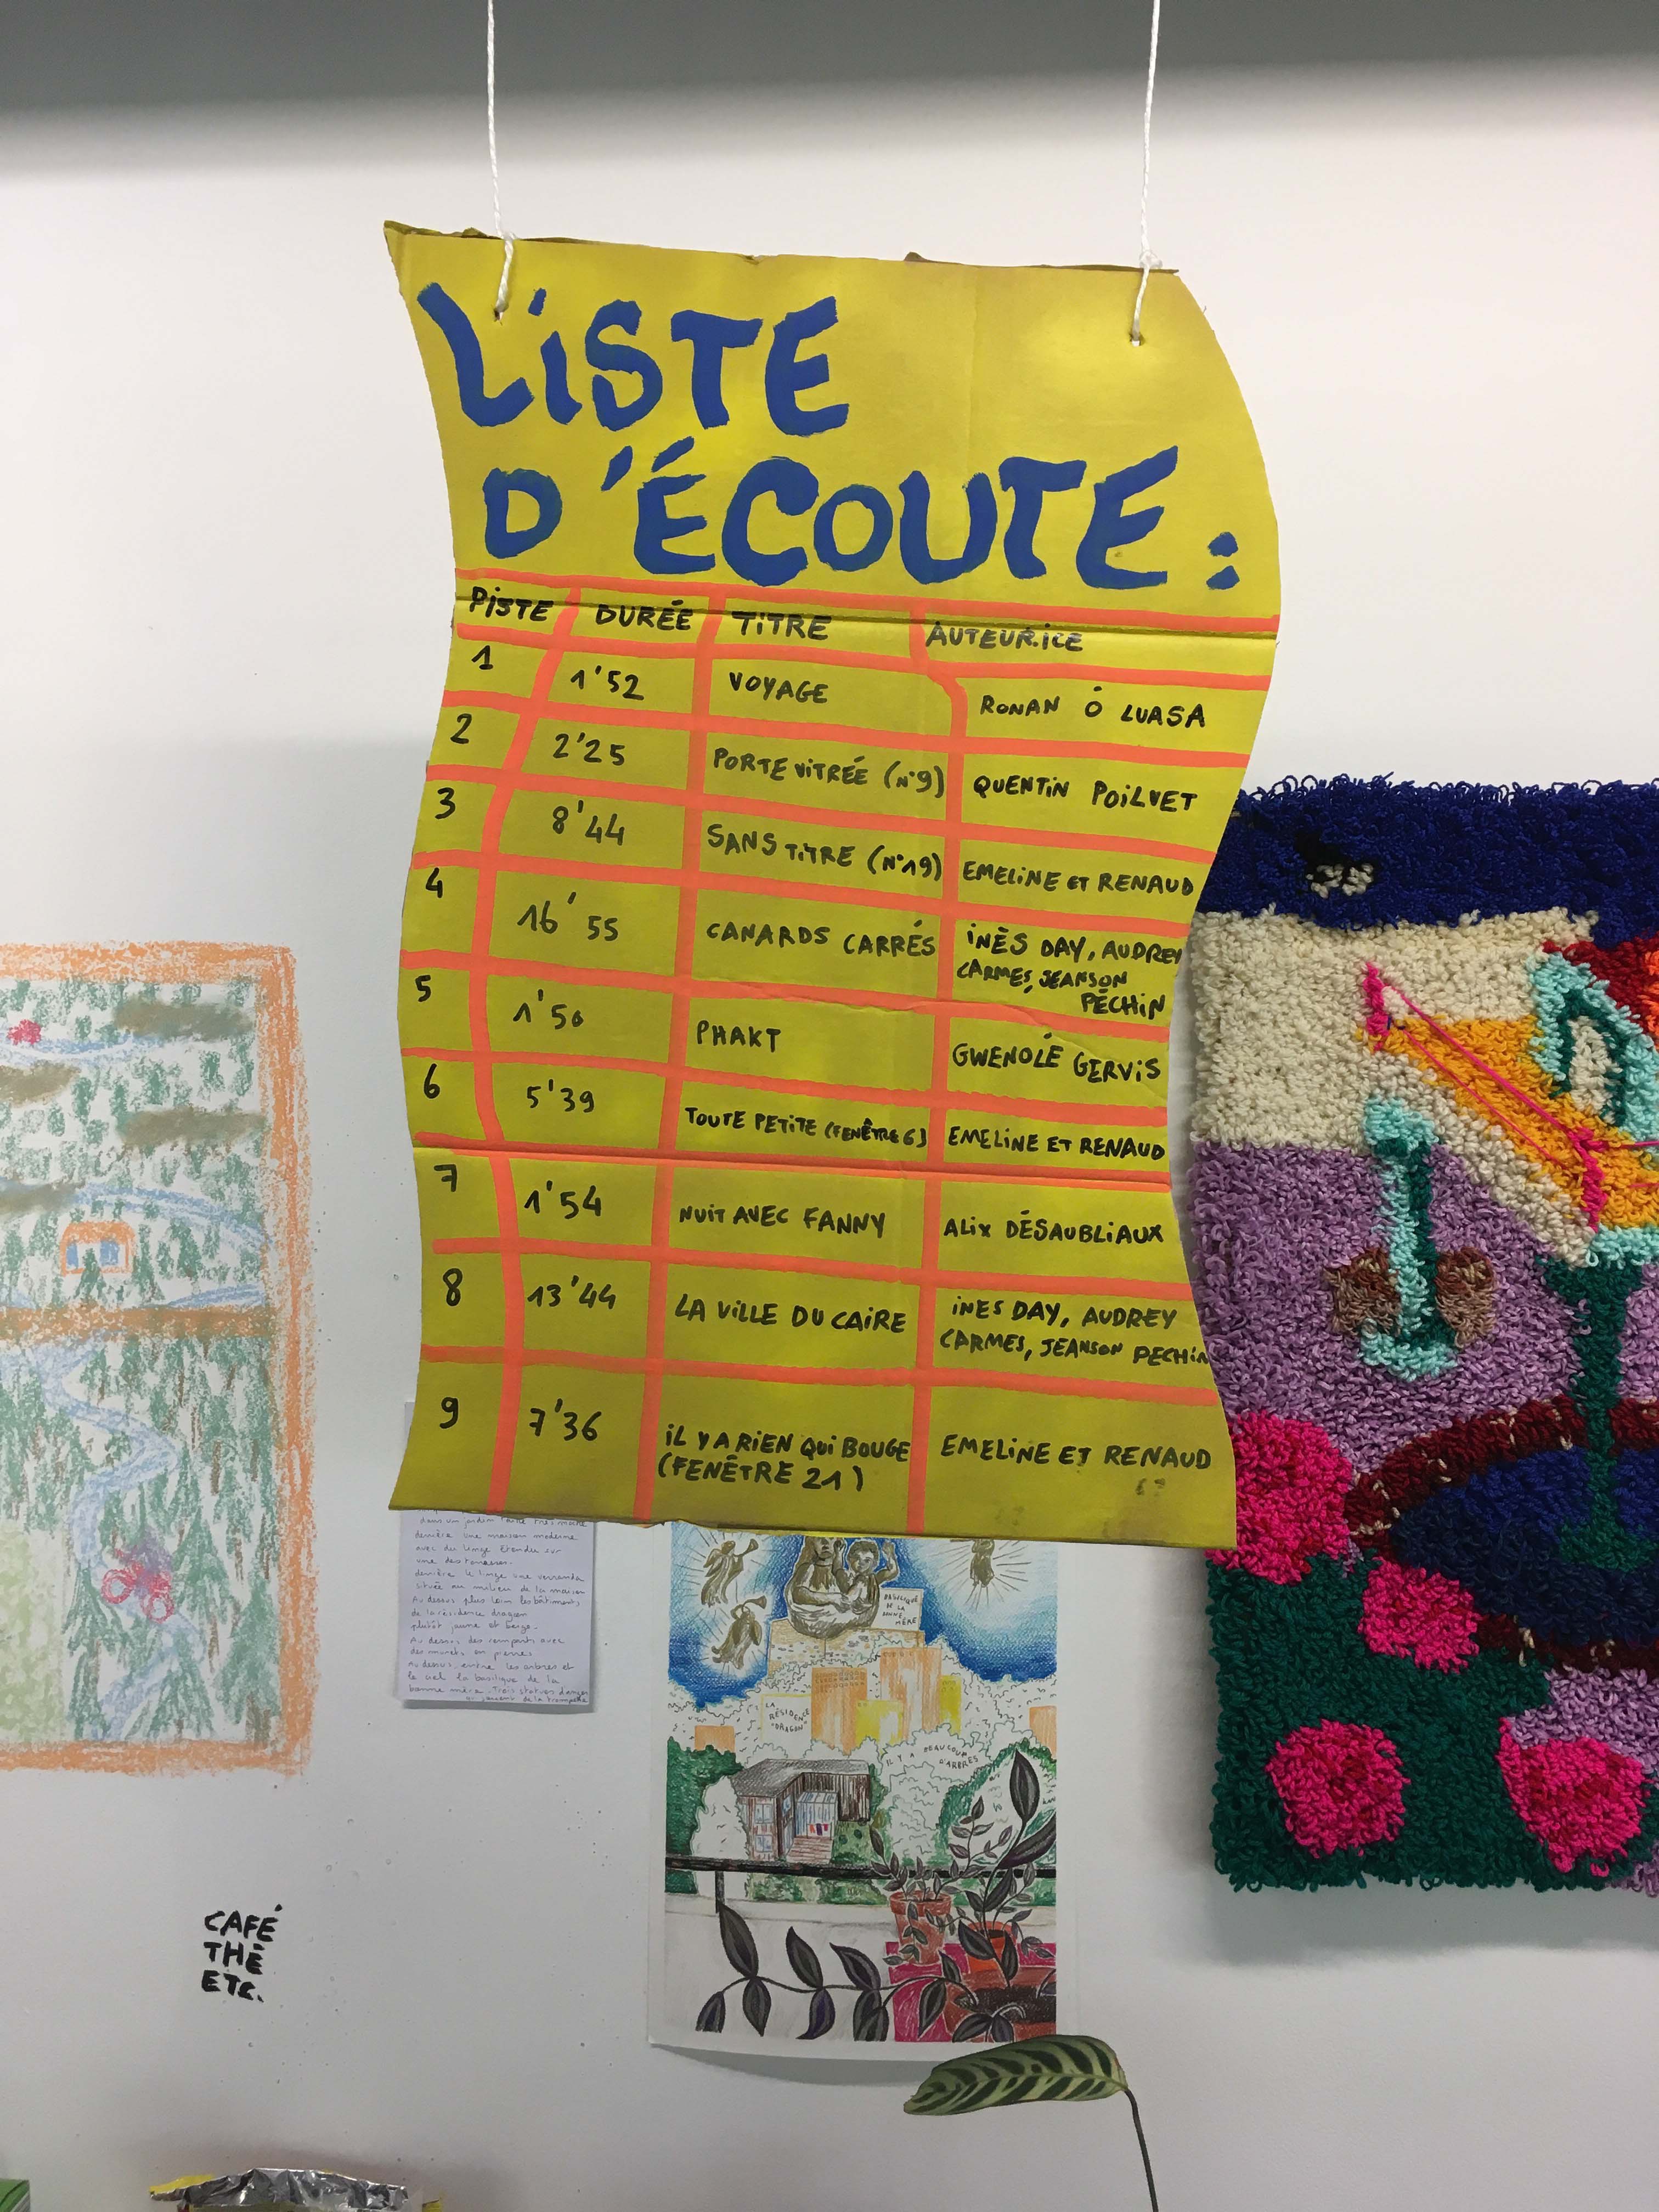 LiSTE
D'ÉCOUTE :
PiSTE DURÉE TiTRE AUTEUR.iCE
1 1'52 VOYAGE RONAN Ó LUASA
2 2'25 PORTE ViTRÉE (N°9) QUENTiN POiLVET
3 8'44 SANS TiTRE (N°19) EMELiNE ET RENAUD
4 16'55 CANARDS CARRÉS iNÈS DAY, AUDREY
CARMES, JEANSON
PÉCHiN
5 1'50 PHAKT GWENOLÉ GERViS
6 5'39 TOUTE PETiTE (FENÊTRE 6) EMELiNE ET RENAUD
7 1'54 NUiT AVEC FANNY ALiX DÉSAUBLiAUX
8 13'44 LA ViLLE DU CAiRE iNES DAY, AUDREY
CARMES, JEANSON PECHiN
9 7'36 iL Y A RiEN QUi BOUGE
(FENÊTRE 21) EMELiNE ET RENAUD
dans un jardin
derrière une maison moderne
avec du linge étendu sur
une des terrasses.
derrière le linge une verranda
située au milieu de la maison
Au dessus plus loin les bâtiments
de la résidence dragon
plutôt jaune et beige.
Au dessus des remparts avec
des murets en pierres
Au dessus, entre les arbres et
le ciel la basilique de la
bonne mère. Trois statues d'anges
qui jouent de la trompette
BASILIQUE
DE LA
BONNE
MÈRE
LA
RÉSIDENCE
"DRAGON"
IL Y A BEAUCOUP
D'ARBRES
CAFÉ
THÉ
ETC.